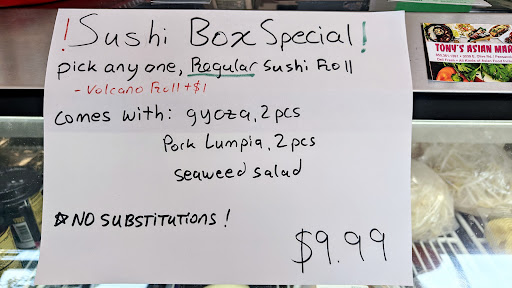 !Sushi Box Special!
pick any one, Regular Sushi Roll
- Volcano Roll +$1
comes with: gyoza, 2 pcs
Pork Lumpia, 2 pcs
seaweed salad
☆ NO SUBSTITUTIONS!
$9.99
TONY'S ASIAN MAR